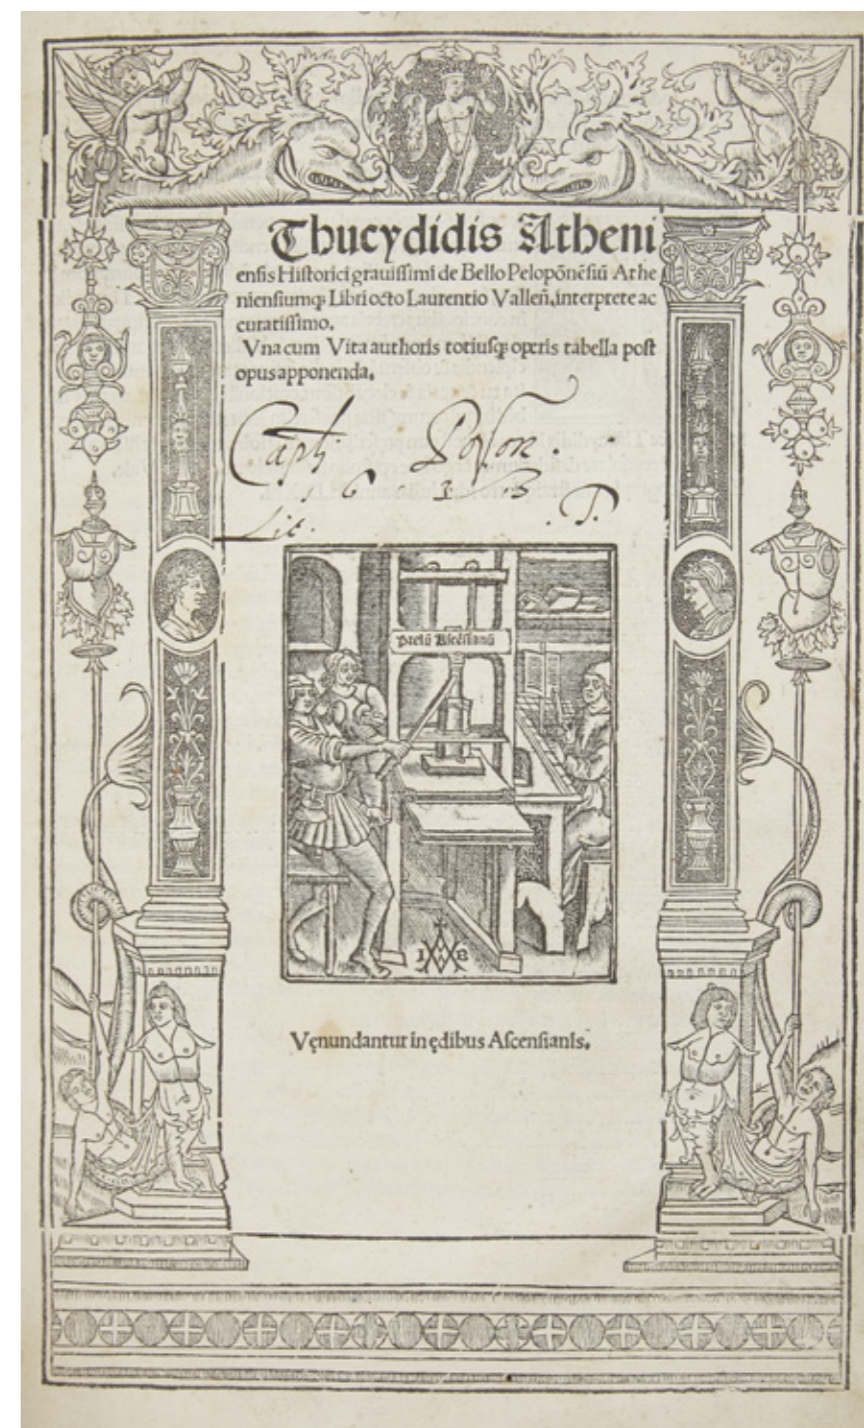 Thucydidis Atheni
ensis Historici grauissimi de Bello Pelopōnēsiū Athe
niensiumqꝫ Libri octo Laurentio Valleñ. interprete ac
curatissimo.
Vna cum Vita authoris totiusqꝫ operis tabella post
opus apponenda.
Capli Poson.
1633
Lit. T.
Prelū Ascēsianū
I A B
Vęnundantur in ędibus Ascensianis.